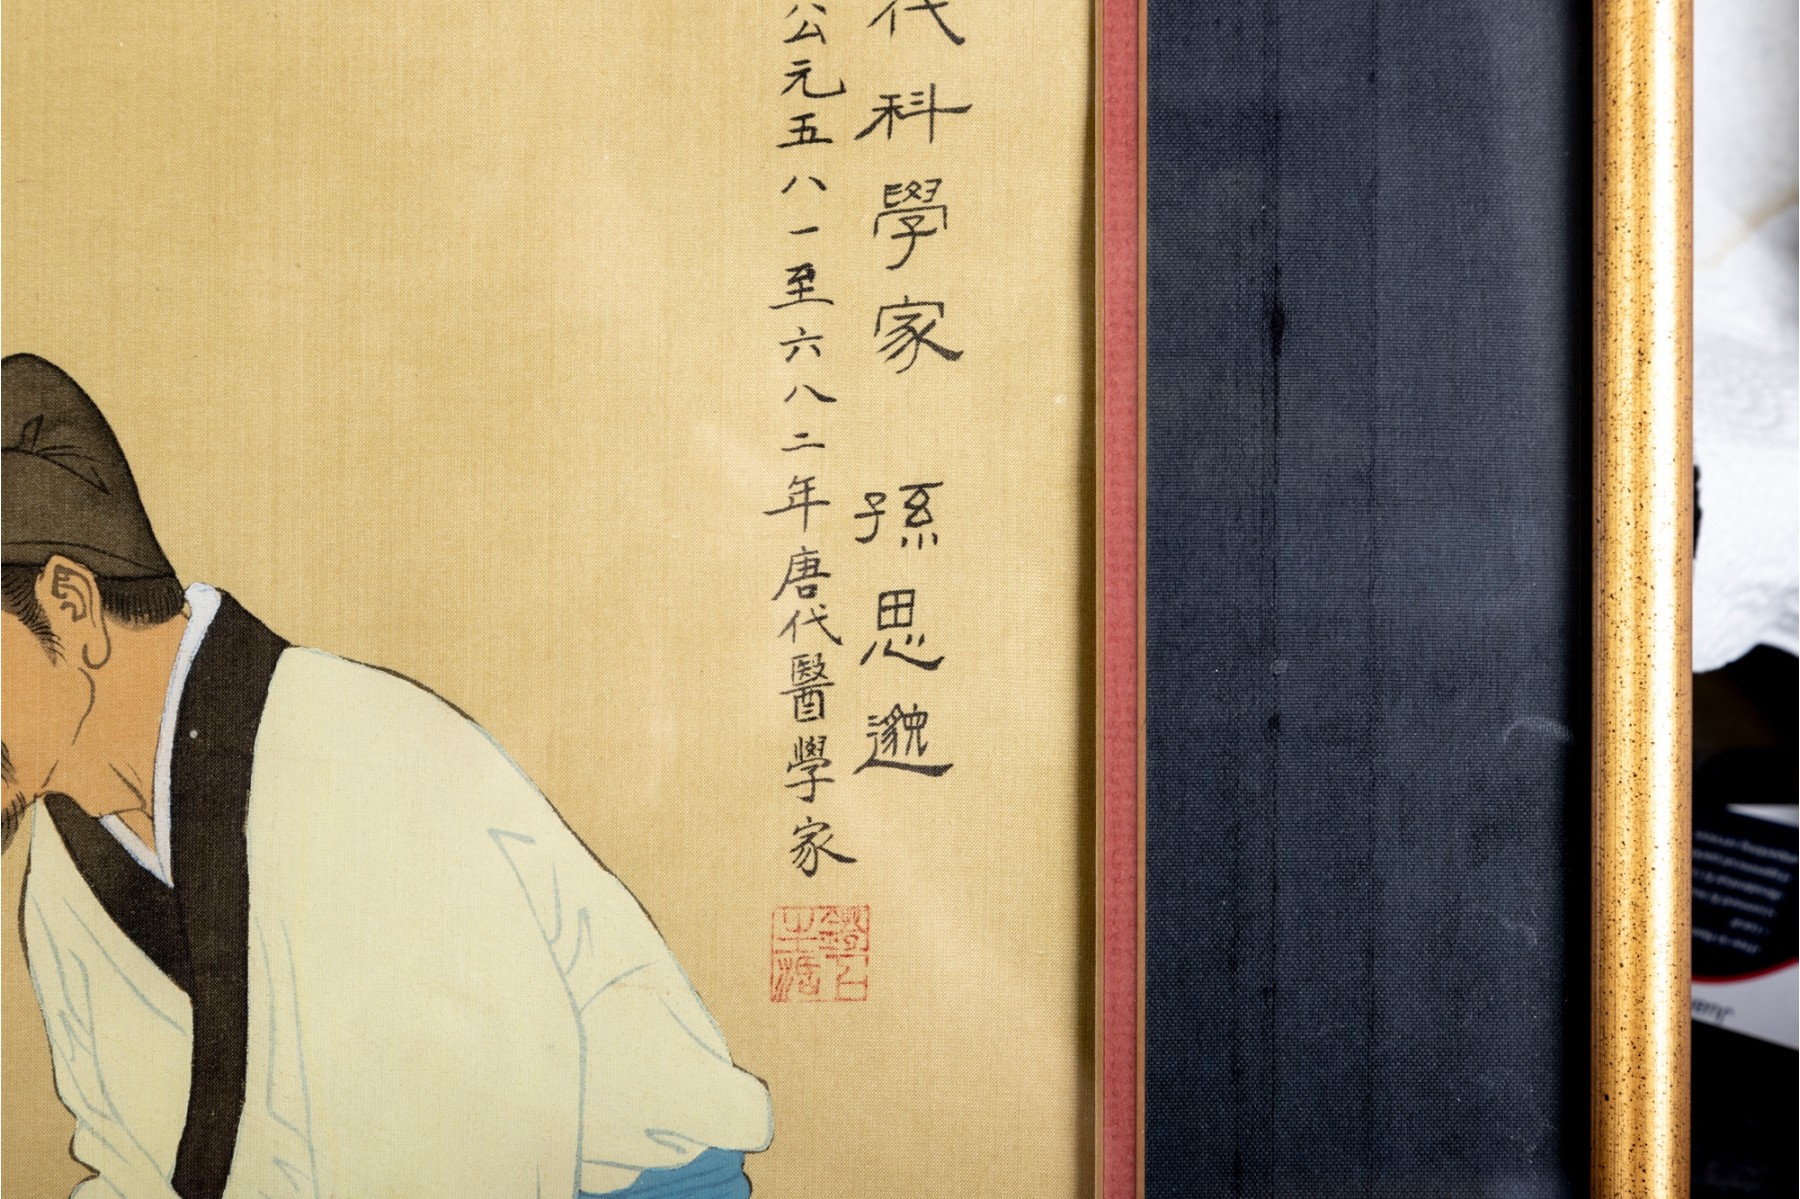 代科學家 孫思邈
公元五八一至六八二年唐代醫學家